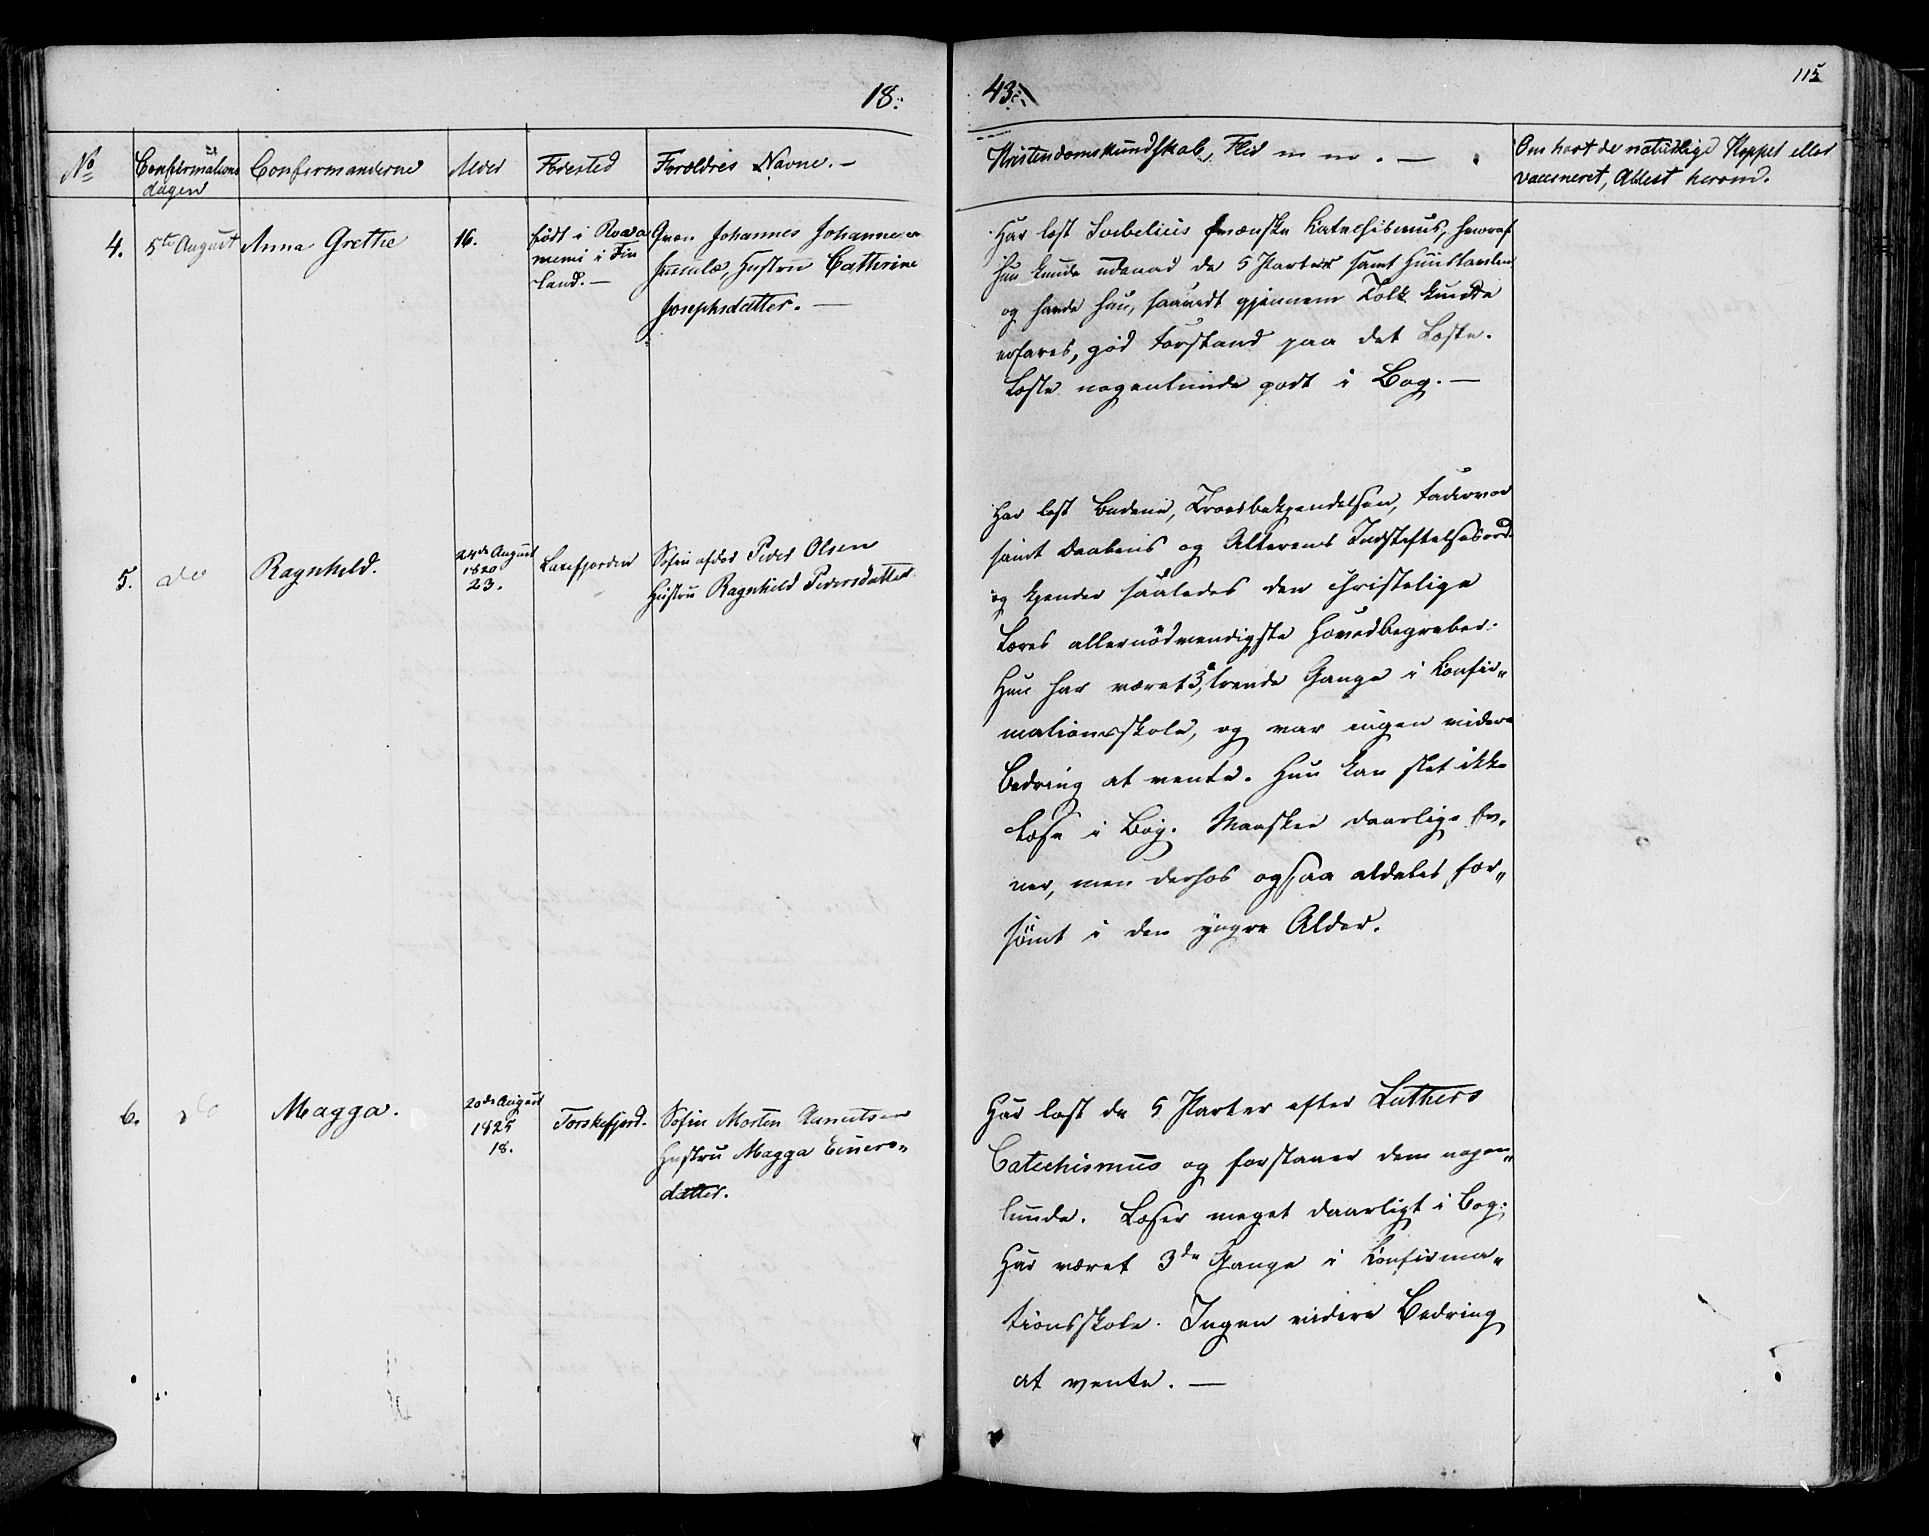 18. 43.
115
No
Confirmations
dagen
Confirmanderne
Alder
Fødested
Forældres Navne. -
Kristendomskundskab, Flid m m. -
Om havt de naturlige Kopper eller
vaccineret, Attest herom.
4.
5te August
Anna Grethe
16.
født i Rova
niemi i Fin
land. -
Qvæn Johannes Johannesen
Hustru Catherine
Josephsdatter. -
Har læst Svebelius svænske Katechismus, hvoraf
hun kunde udenad de 5 Parter samt Huustavlen
og havde hun, saavidt gjennem Tolk kunde
erfares, god Forstand paa det Læste.
Læste nogenlunde godt i Bog. -
5.
do
Ragnhild.
24de August
1820
23.
Laxefjorden
Søfin afdøde Peder Olsen
Hustru Ragnhild Pedersdatter
Har læst Budene, Troesbekjendelsen, Fadervor
samt Daabens og Alterens Indstiftelsesord
og kjender saaledes den christelige
Læres allernødvendigste Hovedbegreber.
Hun har været 3, trende Gange i Confir„
mationsskole, og var ingen videre
Bedring at vente. Hun kan slet ikke
læse i Bog. Maaskee daarlige Ev„
ner, men derhos ogsaa aldeles for„
sømt i den yngre Alder.
6.
do
Magga.
20de August
1825
18.
Torskefjord.
Søfin Morten Amutsen
Hustru Magga Einers„
datter.
Har læst de 5 Parter efter Luthers
Catechismus og forstaaer dem nogen„
lunde. Læser meget daarligt i Bog.
Har været 3de Gange i Confirma„
tionsskole. Ingen videre Bedring
at vente. -